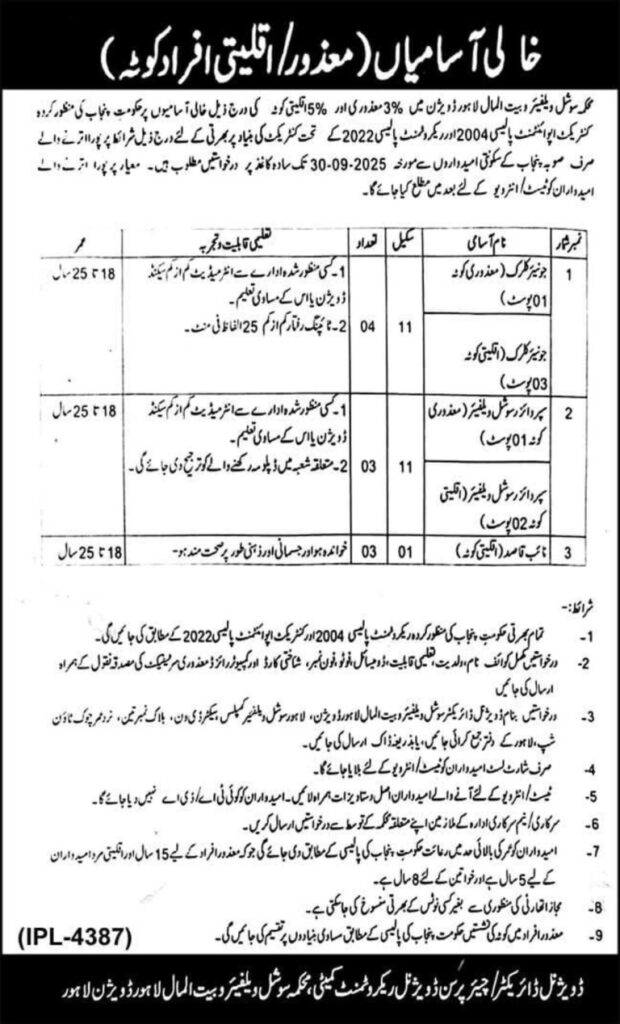 خالی آسامیاں (معذور/اقلیتی افراد کوٹہ)
محکمہ سوشل ویلفیئر و بیت المال لاہور ڈویژن میں 3% معذوری اور 5% اقلیتی کوٹہ کی درج ذیل خالی آسامیوں پر حکومت پنجاب کی منظور کردہ
کنٹریکٹ اپوائنٹمنٹ پالیسی 2004 اور ریکروٹمنٹ پالیسی 2022 کے تحت کنٹریکٹ کی بنیاد پر بھرتی کے لئے درج ذیل شرائط پر پورا اترنے والے
صرف صوبہ پنجاب کے سکونتی امیدواروں سے مورخہ 30-09-2025 تک سادہ کاغذ پر درخواستیں مطلوب ہیں۔ معیار پر پورا اترنے والے
امیدواران کو ٹیسٹ/انٹرویو کے لئے بعد میں مطلع کیا جائے گا۔
نمبر شمار نام آسامی سکیل تعداد تعلیمی قابلیت و تجربہ عمر
1 جونیئر کلرک (معذوری کوٹہ
01 پوسٹ)
جونیئر کلرک (اقلیتی کوٹہ
03 پوسٹ)
11 04
1۔ کسی منظور شدہ ادارے سے انٹرمیڈیٹ کم از کم سیکنڈ
ڈویژن یا اس کے مساوی تعلیم۔
2۔ ٹائپنگ رفتار کم از کم 25 الفاظ فی منٹ۔
18 تا 25 سال
2 سپروائزر سوشل ویلفیئر (معذوری
کوٹہ 01 پوسٹ)
سپروائزر سوشل ویلفیئر (اقلیتی
کوٹہ 02 پوسٹ)
11 03
1۔ کسی منظور شدہ ادارے سے انٹرمیڈیٹ کم از کم سیکنڈ
ڈویژن یا اس کے مساوی تعلیم۔
2۔ متعلقہ شعبہ میں ڈپلومہ رکھنے والے کو ترجیح دی جائے گی۔
18 تا 25 سال
3 نائب قاصد (اقلیتی کوٹہ) 01 03 خواندہ ہو اور جسمانی اور ذہنی طور پر صحت مند ہو۔ 18 تا 25 سال
شرائط:-
1- تمام بھرتی حکومت پنجاب کی منظور کردہ ریکروٹمنٹ پالیسی 2004 اور کنٹریکٹ اپوائنٹمنٹ پالیسی 2022 کے مطابق کی جائیں گی۔
2- درخواستیں مکمل کوائف نام، ولدیت، تعلیمی قابلیت، ڈومیسائل، فوٹو، فون نمبر، شناختی کارڈ اور کمپیوٹرائزڈ معذوری سرٹیفکیٹ کی مصدقہ نقول کے ہمراہ
ارسال کی جائیں
3- درخواستیں بنام ڈویژنل ڈائریکٹر سوشل ویلفیئر و بیت المال لاہور ڈویژن، لاہور سوشل ویلفیئر کمپلیکس، سیکٹر ڈی ون، بلاک نمبر تین، نزد عمر چوک ٹاؤن
شپ، لاہور کے دفتر جمع کرائی جائیں، یا بذریعہ ڈاک ارسال کی جائیں۔
4- صرف شارٹ لسٹ امیدواران کو ٹیسٹ/انٹرویو کے لئے بلایا جائے گا۔
5- ٹیسٹ/انٹرویو کے لئے آنے والے امیدواران اصل دستاویزات ہمراہ لائیں۔ امیدواران کو کوئی ٹی اے/ڈی اے نہیں دیا جائے گا۔
6- سرکاری/نیم سرکاری ادارہ کے ملازمین اپنے متعلقہ محکمہ کے توسط سے درخواستیں ارسال کریں۔
7- امیدواران کو عمر کی بالائی حد میں رعایت حکومت پنجاب کی پالیسی کے مطابق دی جائے گی جو کہ معذور افراد کے لیے 15 سال اور اقلیتی مرد امیدواران
کے لیے 5 سال ہے اور خواتین کے لئے 8 سال ہے۔
8- مجاز اتھارٹی کی منظوری سے بغیر کسی نوٹس کے بھرتی منسوخ کی جا سکتی ہے۔
9- معذور افراد میں کوٹہ کی نشستیں حکومت پنجاب کی پالیسی کے مطابق مساوی بنیادوں پر تقسیم کی جائیں گی۔
(IPL-4387)
ڈویژنل ڈائریکٹر/چیئرپرسن ڈویژنل ریکروٹمنٹ کمیٹی، محکمہ سوشل ویلفیئر و بیت المال لاہور ڈویژن لاہور